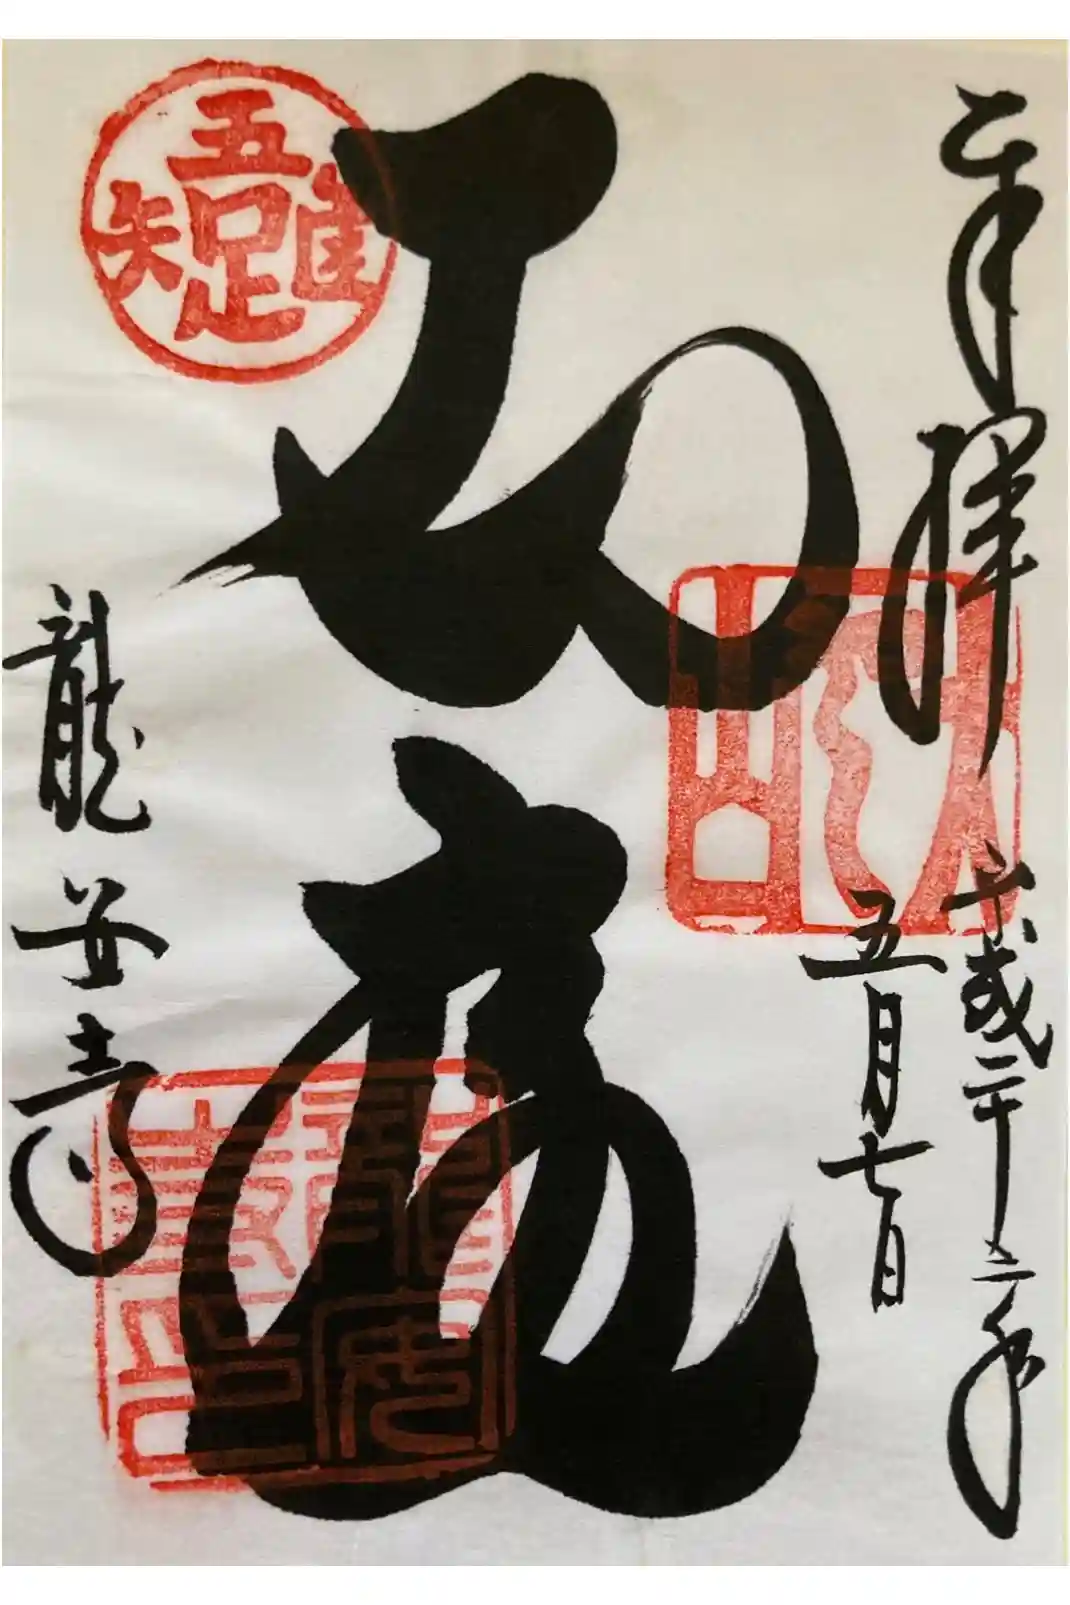 奉拝
平成二十三年
五月七日
石庭
龍安寺
吾唯足知
龍安寺印